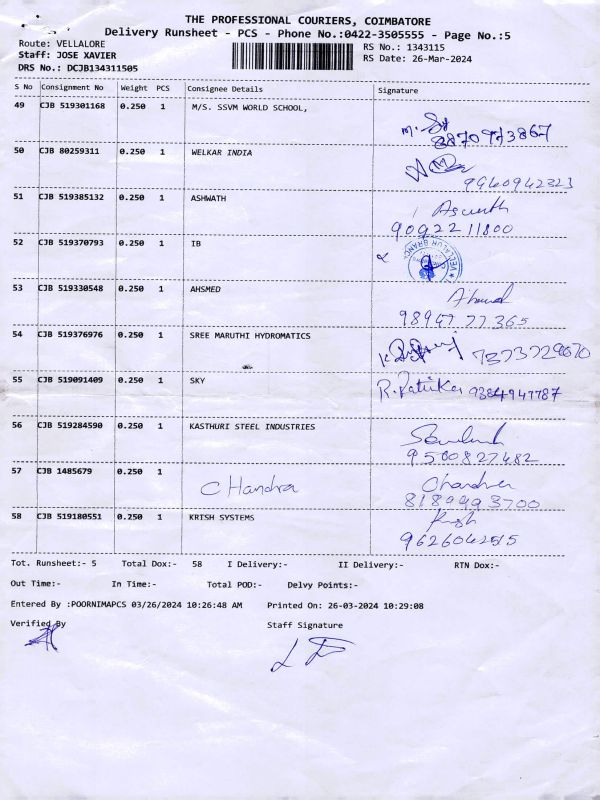 THE PROFESSIONAL COURIERS, COIMBATORE
Delivery Runsheet - PCS - Phone No.:0422-3505555 - Page No.:5
Route: VELLALORE RS No.: 1343115
Staff: JOSE XAVIER RS Date: 26-Mar-2024
DRS No.: DCJB134311505
S No Consignment No Weight PCS Consignee Details Signature
49 CJB 519301168 0.250 1 M/S. SSVM WORLD SCHOOL,
50 CJB 80259311 0.250 1 WELKAR INDIA
9940942323
51 CJB 519385132 0.250 1 ASHWATH Aswath
9092211800
52 CJB 519370793 0.250 1 IB
VELLALUR BRANCH
53 CJB 519330548 0.250 1 AHSMED Ahmed
9894777365
54 CJB 519376976 0.250 1 SREE MARUTHI HYDROMATICS
55 CJB 519091409 0.250 1 SKY
R. 9384947787
56 CJB 519284590 0.250 1 KASTHURI STEEL INDUSTRIES
9500827482
57 CJB 1485679 0.250 1 CHandra Chandra
8189993700
58 CJB 519180551 0.250 1 KRISH SYSTEMS
9626042515
Tot. Runsheet:- 5 Total Dox:- 58 I Delivery:- II Delivery:- RTN Dox:-
Out Time:- In Time:- Total POD:- Delvy Points:-
Entered By :POORNIMAPCS 03/26/2024 10:26:48 AM Printed On: 26-03-2024 10:29:08
Verified By Staff Signature